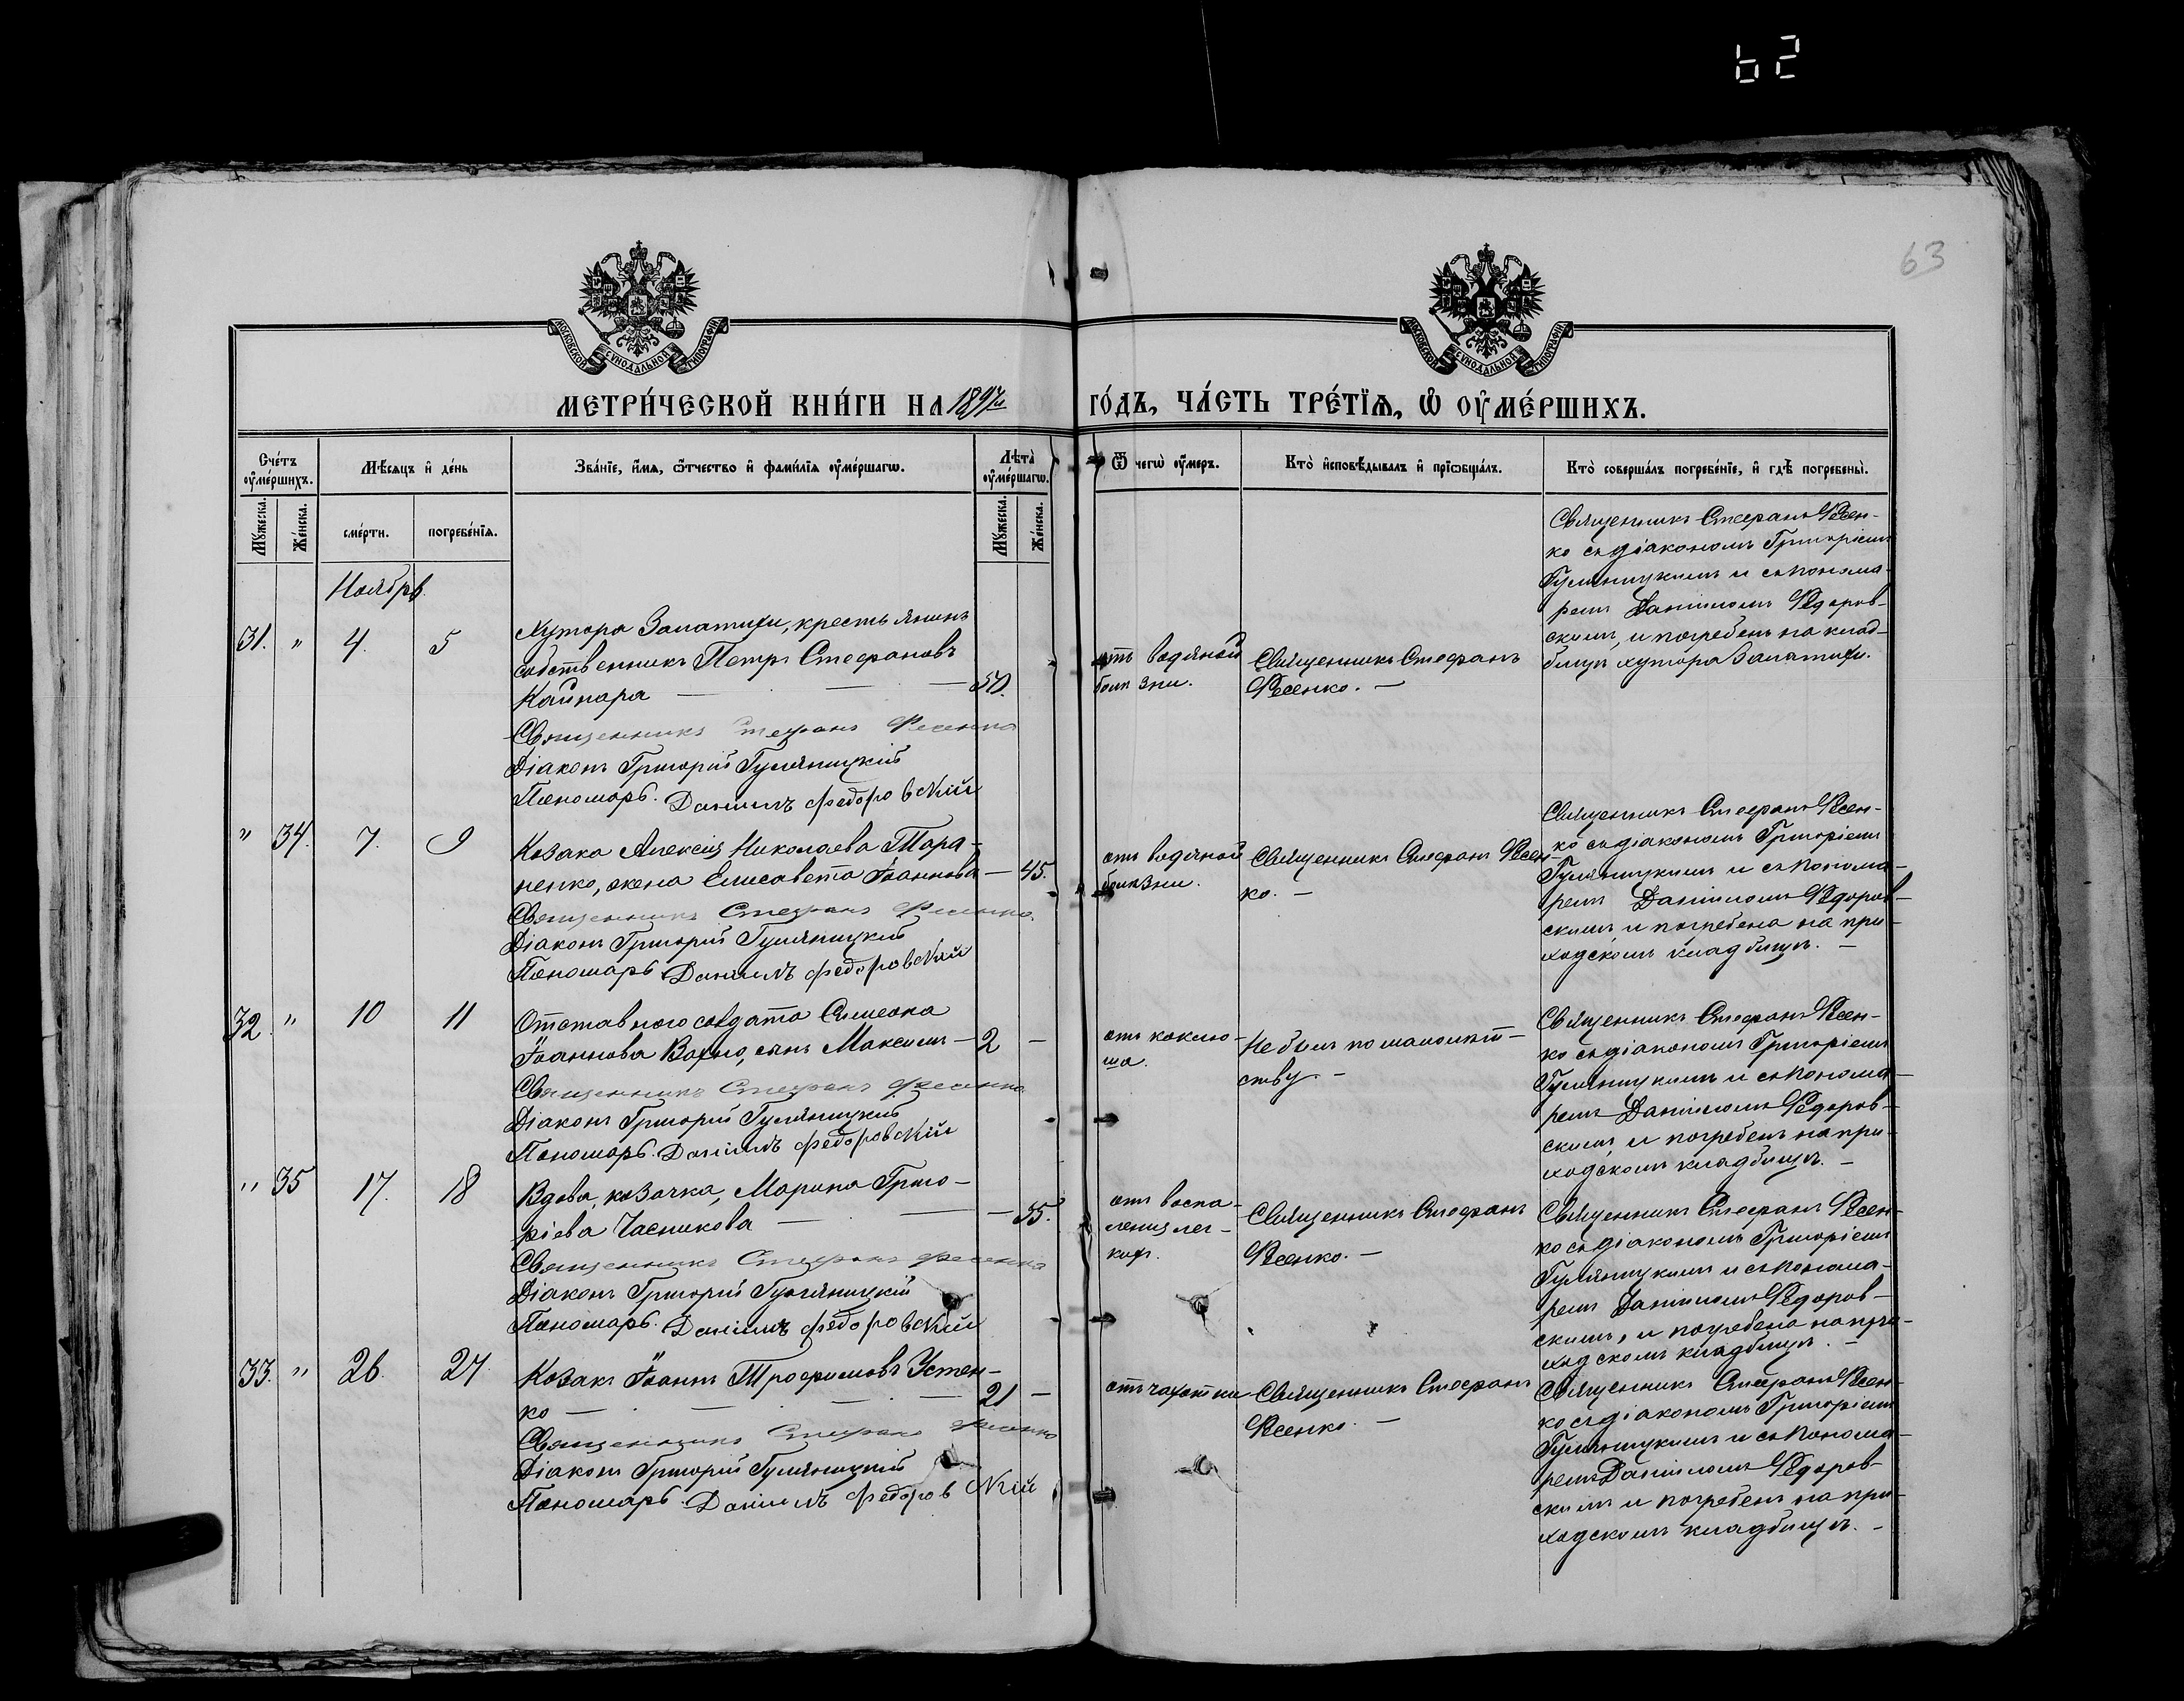 62
63
МОСКОВСКОЙ СУНОДАЛЬНОЙ ТИПОГРАФІИ
МОСКОВСКОЙ СУНОДАЛЬНОЙ ТИПОГРАФІИ
МЕТРИ́ЧЕСКОЙ КНИ́ГИ НА 1897й ГО́ДЪ, ЧА́СТЬ ТРЕ́ТІѦ, Ѡ҆ ОУ҆МЕ́РШИХЪ.
Счётъ оу҆ме́ршихъ.
Мѣ́сяцъ и҆ де́нь
Зва́нїе, и҆́мѧ, ѻ҆́тчество и҆ фами́лїѧ оу҆ме́ршагѡ.
Лѣта̀ оу҆ме́ршагѡ.
Ѿ чегѡ̀ оу҆́меръ.
Кто̀ и҆сповѣ́дывалъ и҆ прїѡбща́лъ.
Кто̀ соверша́лъ погребе́нїе, и҆ гдѣ̀ погребены̀.
Мꙋ́жеска.
Же́нска.
сме́рти.
погребе́нїѧ.
Мꙋ́жеска.
Же́нска.
Ноябрь.
31. " 4. 5
Хутора Залатихи, крестьянинъ
собственникъ Петръ Стефановъ
Кайпара — — — 50.
Священникъ Стефанъ Фесенко
Діаконъ Григорій Гуляницкій
Пономарь. Даніилъ Федоровскій
отъ водяной
болѣзни.
Священникъ Стефанъ
Фесенко. —
Священникъ Стефанъ Фесен-
ко съ діакономъ Григоріемъ
Гуляницкимъ и съ понома-
ремъ Даніиломъ Федоров-
скимъ, и погребенъ на клад-
бищѣ хутора Залатихи.
" 34. 7. 9
Козака Алексія Николаева Тара-
ненко, жена Елисавета Іоаннова — 45.
Священникъ Стефанъ Фесенко.
Діаконъ Григорій Гуляницкій
Пономарь Даніилъ Федоровскій
отъ водяной
болѣзни.
Священникъ Стефанъ Фесен-
ко. —
Священникъ Стефанъ Фесен-
ко съ діакономъ Григоріемъ
Гуляницкимъ и съ понома-
ремъ Даніиломъ Федоров-
скимъ и погребена на при-
ходскомъ кладбищѣ. —
32. " 10 11
Отставного солдата Симеона
Іоаннова Вахно, сынъ Максимъ — 2 —
Священникъ Стефанъ Фесенко
Діаконъ Григорій Гуляницкій
Пономарь. Даніилъ Федоровскій
отъ коклю-
ша.
Не былъ по малолѣт-
ству. —
Священникъ Стефанъ Фесен-
ко съ діакономъ Григоріемъ
Гуляницкимъ и съ понома-
ремъ Даніиломъ Федоров-
скимъ, и погребенъ на при-
ходскомъ кладбищѣ. —
" 35 17. 18
Вдова, козачка, Марина Григо-
ріева Часникова — — — 55.
Священникъ Стефанъ Фесенко
Діаконъ Григорій Гуляницкій
Пономарь. Даніилъ Федоровскій
отъ воспа-
ленія лег-
кихъ.
Священникъ Стефанъ
Фесенко. —
Священникъ Стефанъ Фесен-
ко съ діакономъ Григоріемъ
Гуляницкимъ и съ понома-
ремъ Даніиломъ Федоров-
скимъ, и погребена на при-
ходскомъ кладбищѣ. —
33. " 26. 27.
Козакъ Іоаннъ Трофимовъ Устен-
ко — — — — 21 —
Священникъ Стефанъ Фесенко
Діаконъ Григорій Гуляницкій
Пономарь. Даніилъ Федоровскій
отъ чахотки
Священникъ Стефанъ
Фесенко. —
Священникъ Стефанъ Фесен-
ко съ діакономъ Григоріемъ
Гуляницкимъ и съ понома-
ремъ Даніиломъ Федоров-
скимъ и погребенъ на при-
ходскомъ кладбищѣ. —